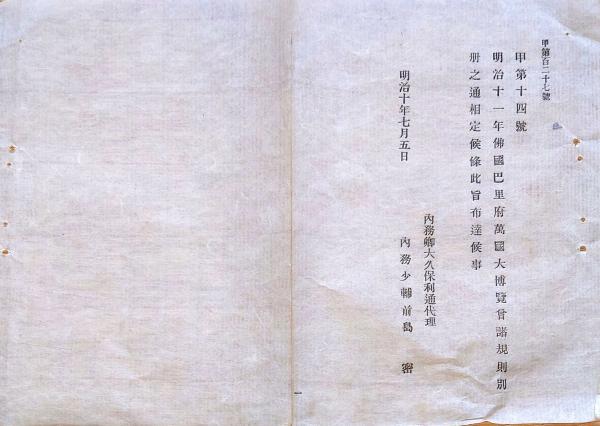 甲第百二十七號
甲第十四號
明治十一年佛國巴里府萬國大博覽會諸規則別
册之通相定候條此旨布達候事
明治十年七月五日
內務卿大久保利通代理
內務少輔前島　密
一